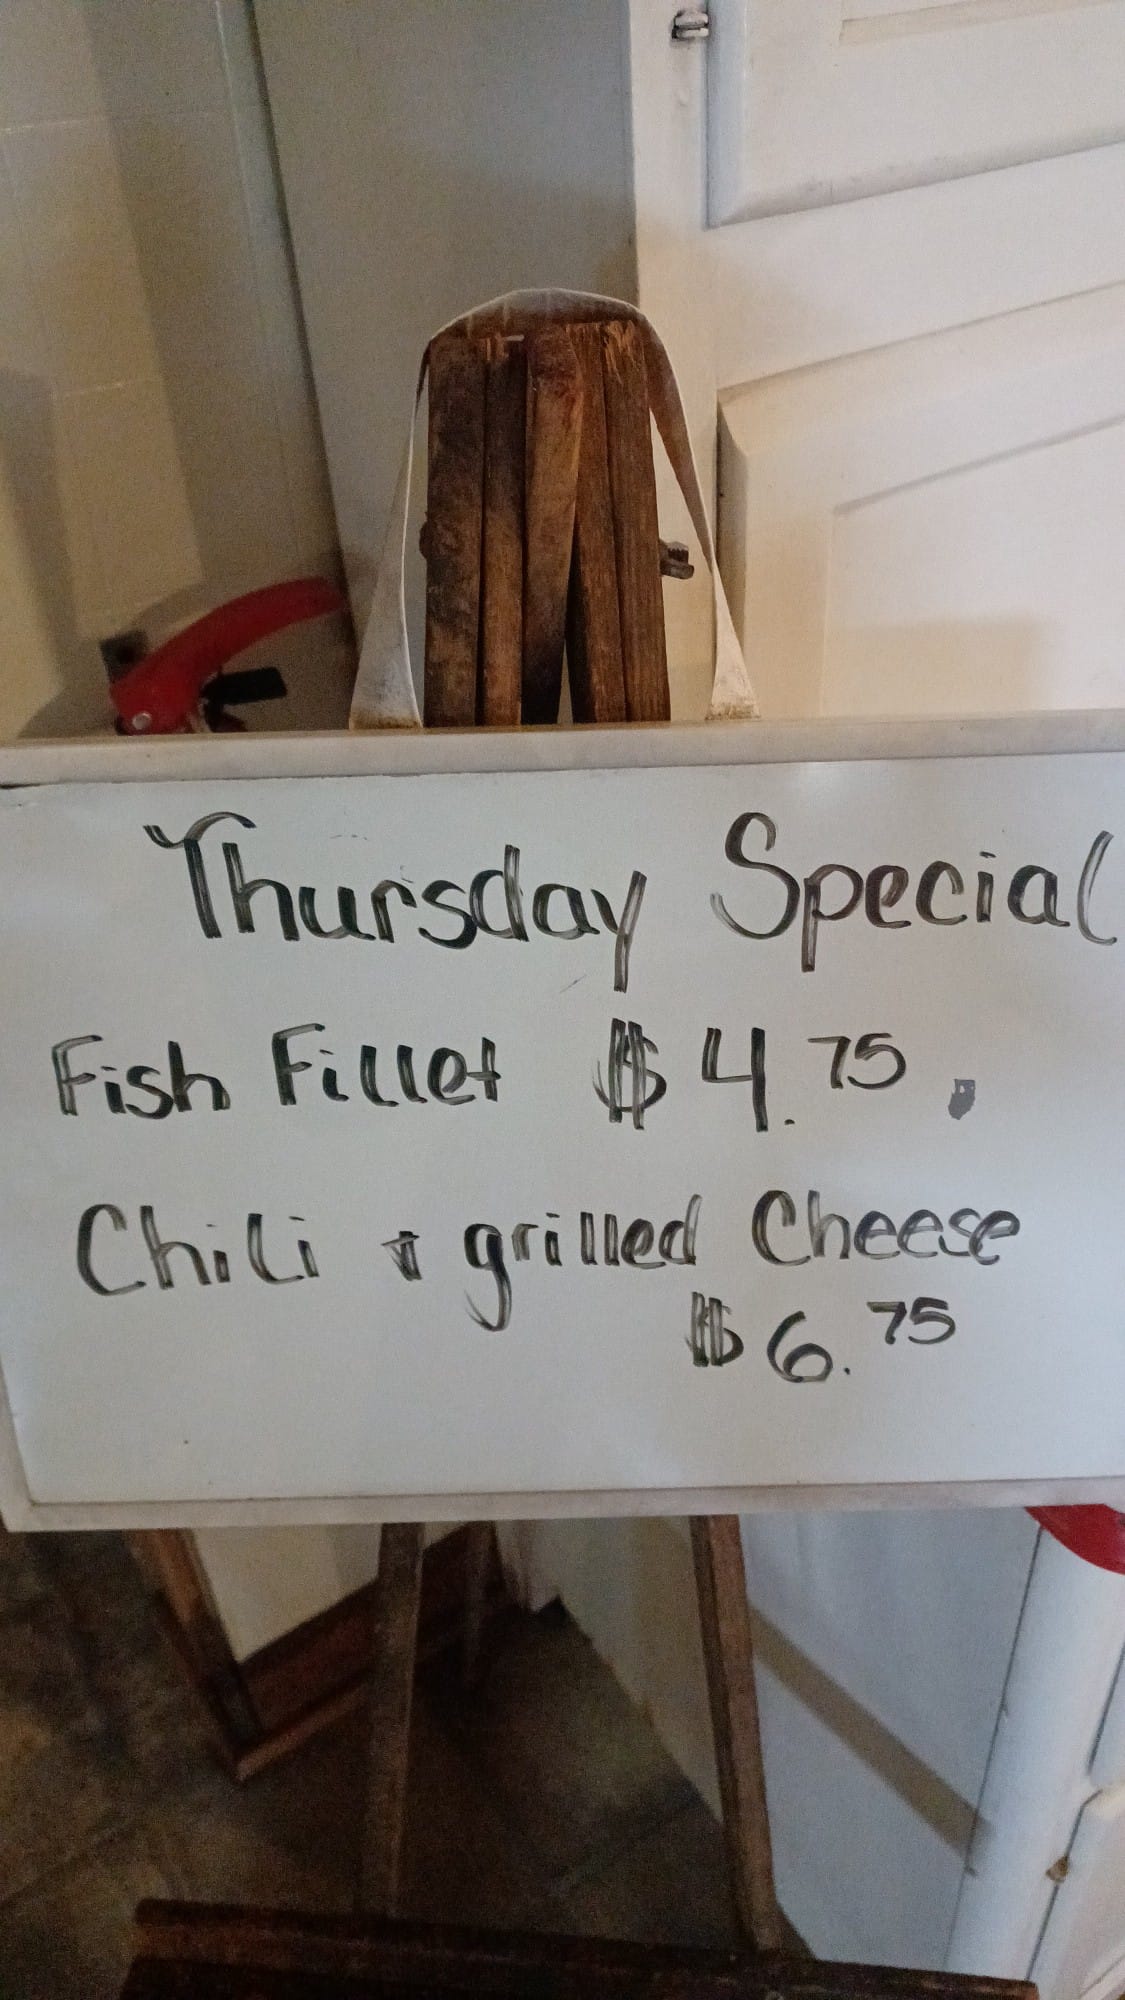 Thursday Special
Fish Fillet $4.75
Chili & grilled Cheese
$6.75